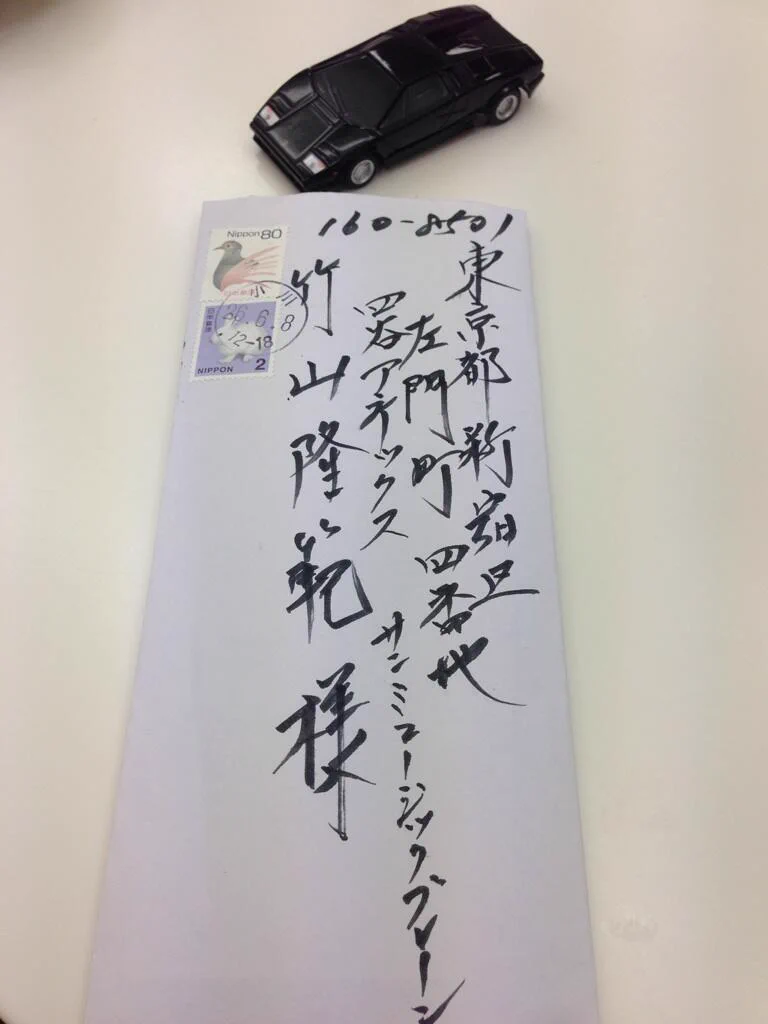 160-8501
東京都新宿区
左門町四番地
四谷アネックス
サンミュージックブレーン
竹山隆範様
Nippon80
日本郵便
小川
26.6.8
12-18
日本郵便
NIPPON 2